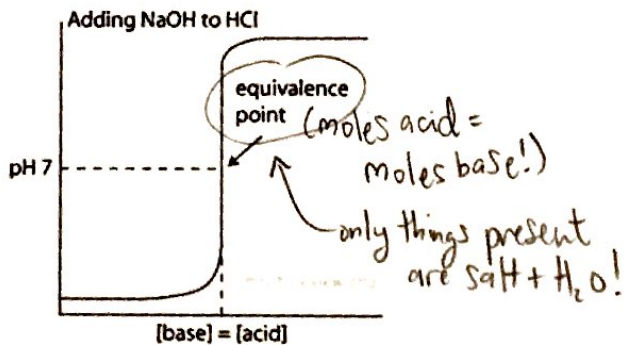 Adding NaOH to HCl
equivalence
point (moles acid =
moles base!)
pH 7
only things present
are salt + H₂O!
[base] = [acid]